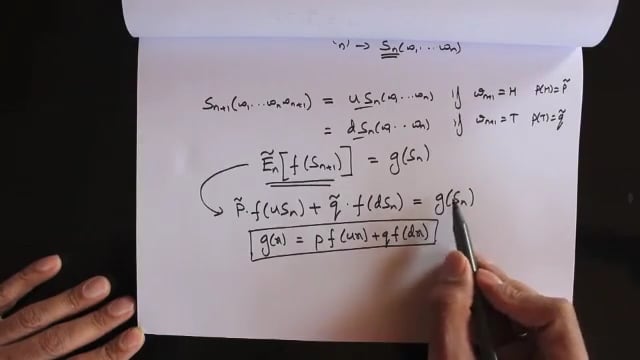 'n' → Sn(ω1 ... ωn)
Sn+1(ω1 ... ωn ωn+1) = u Sn(ω1 ... ωn) if ωn+1 = H P(H) = p̃
= d Sn(ω1 ... ωn) if ωn+1 = T P(T) = q̃
Ẽn[f(Sn+1)] = g(Sn)
p̃ · f(uSn) + q̃ · f(dSn) = g(Sn)
g(x) = p f(ux) + q f(dx)